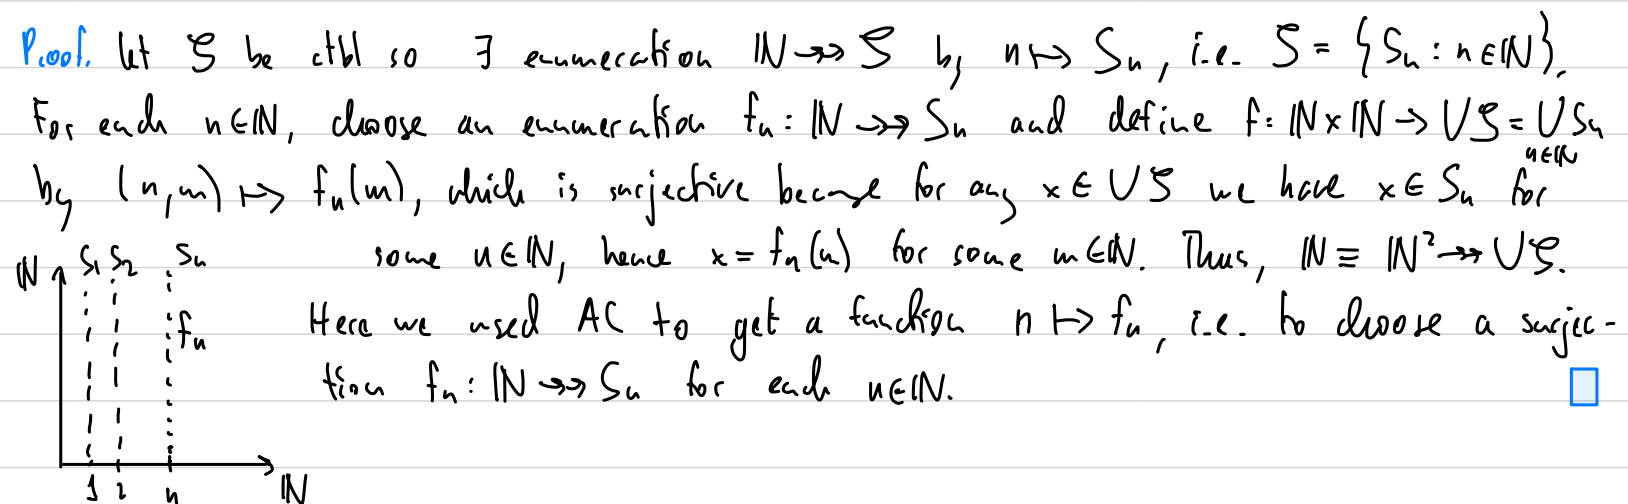 Proof. Let 𝒮 be ctbl so ∃ enumeration ℕ ↠ 𝒮 by n ↦ Sₙ, i.e. 𝒮 = {Sₙ : n ∈ ℕ}.
For each n ∈ ℕ, choose an enumeration fₙ : ℕ ↠ Sₙ and define f : ℕ × ℕ → ∪𝒮 = ∪ Sₙ
n ∈ ℕ
by (n,m) ↦ fₙ(m), which is surjective because for any x ∈ ∪𝒮 we have x ∈ Sₙ for
some n ∈ ℕ, hence x = fₙ(m) for some m ∈ ℕ. Thus, ℕ ≡ ℕ² ↠ ∪𝒮.
Here we used AC to get a function n ↦ fₙ, i.e. to choose a surjec-
tion fₙ : ℕ ↠ Sₙ for each n ∈ ℕ.
ℕ S₁ S₂ Sₙ
fₙ
1 2 n ℕ